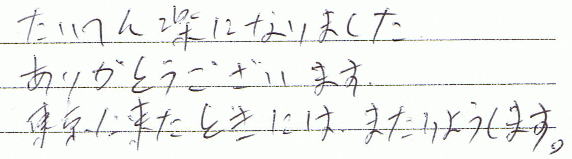 たいへん楽になりました
ありがとうございます.
東京に来たときには、またりようします。